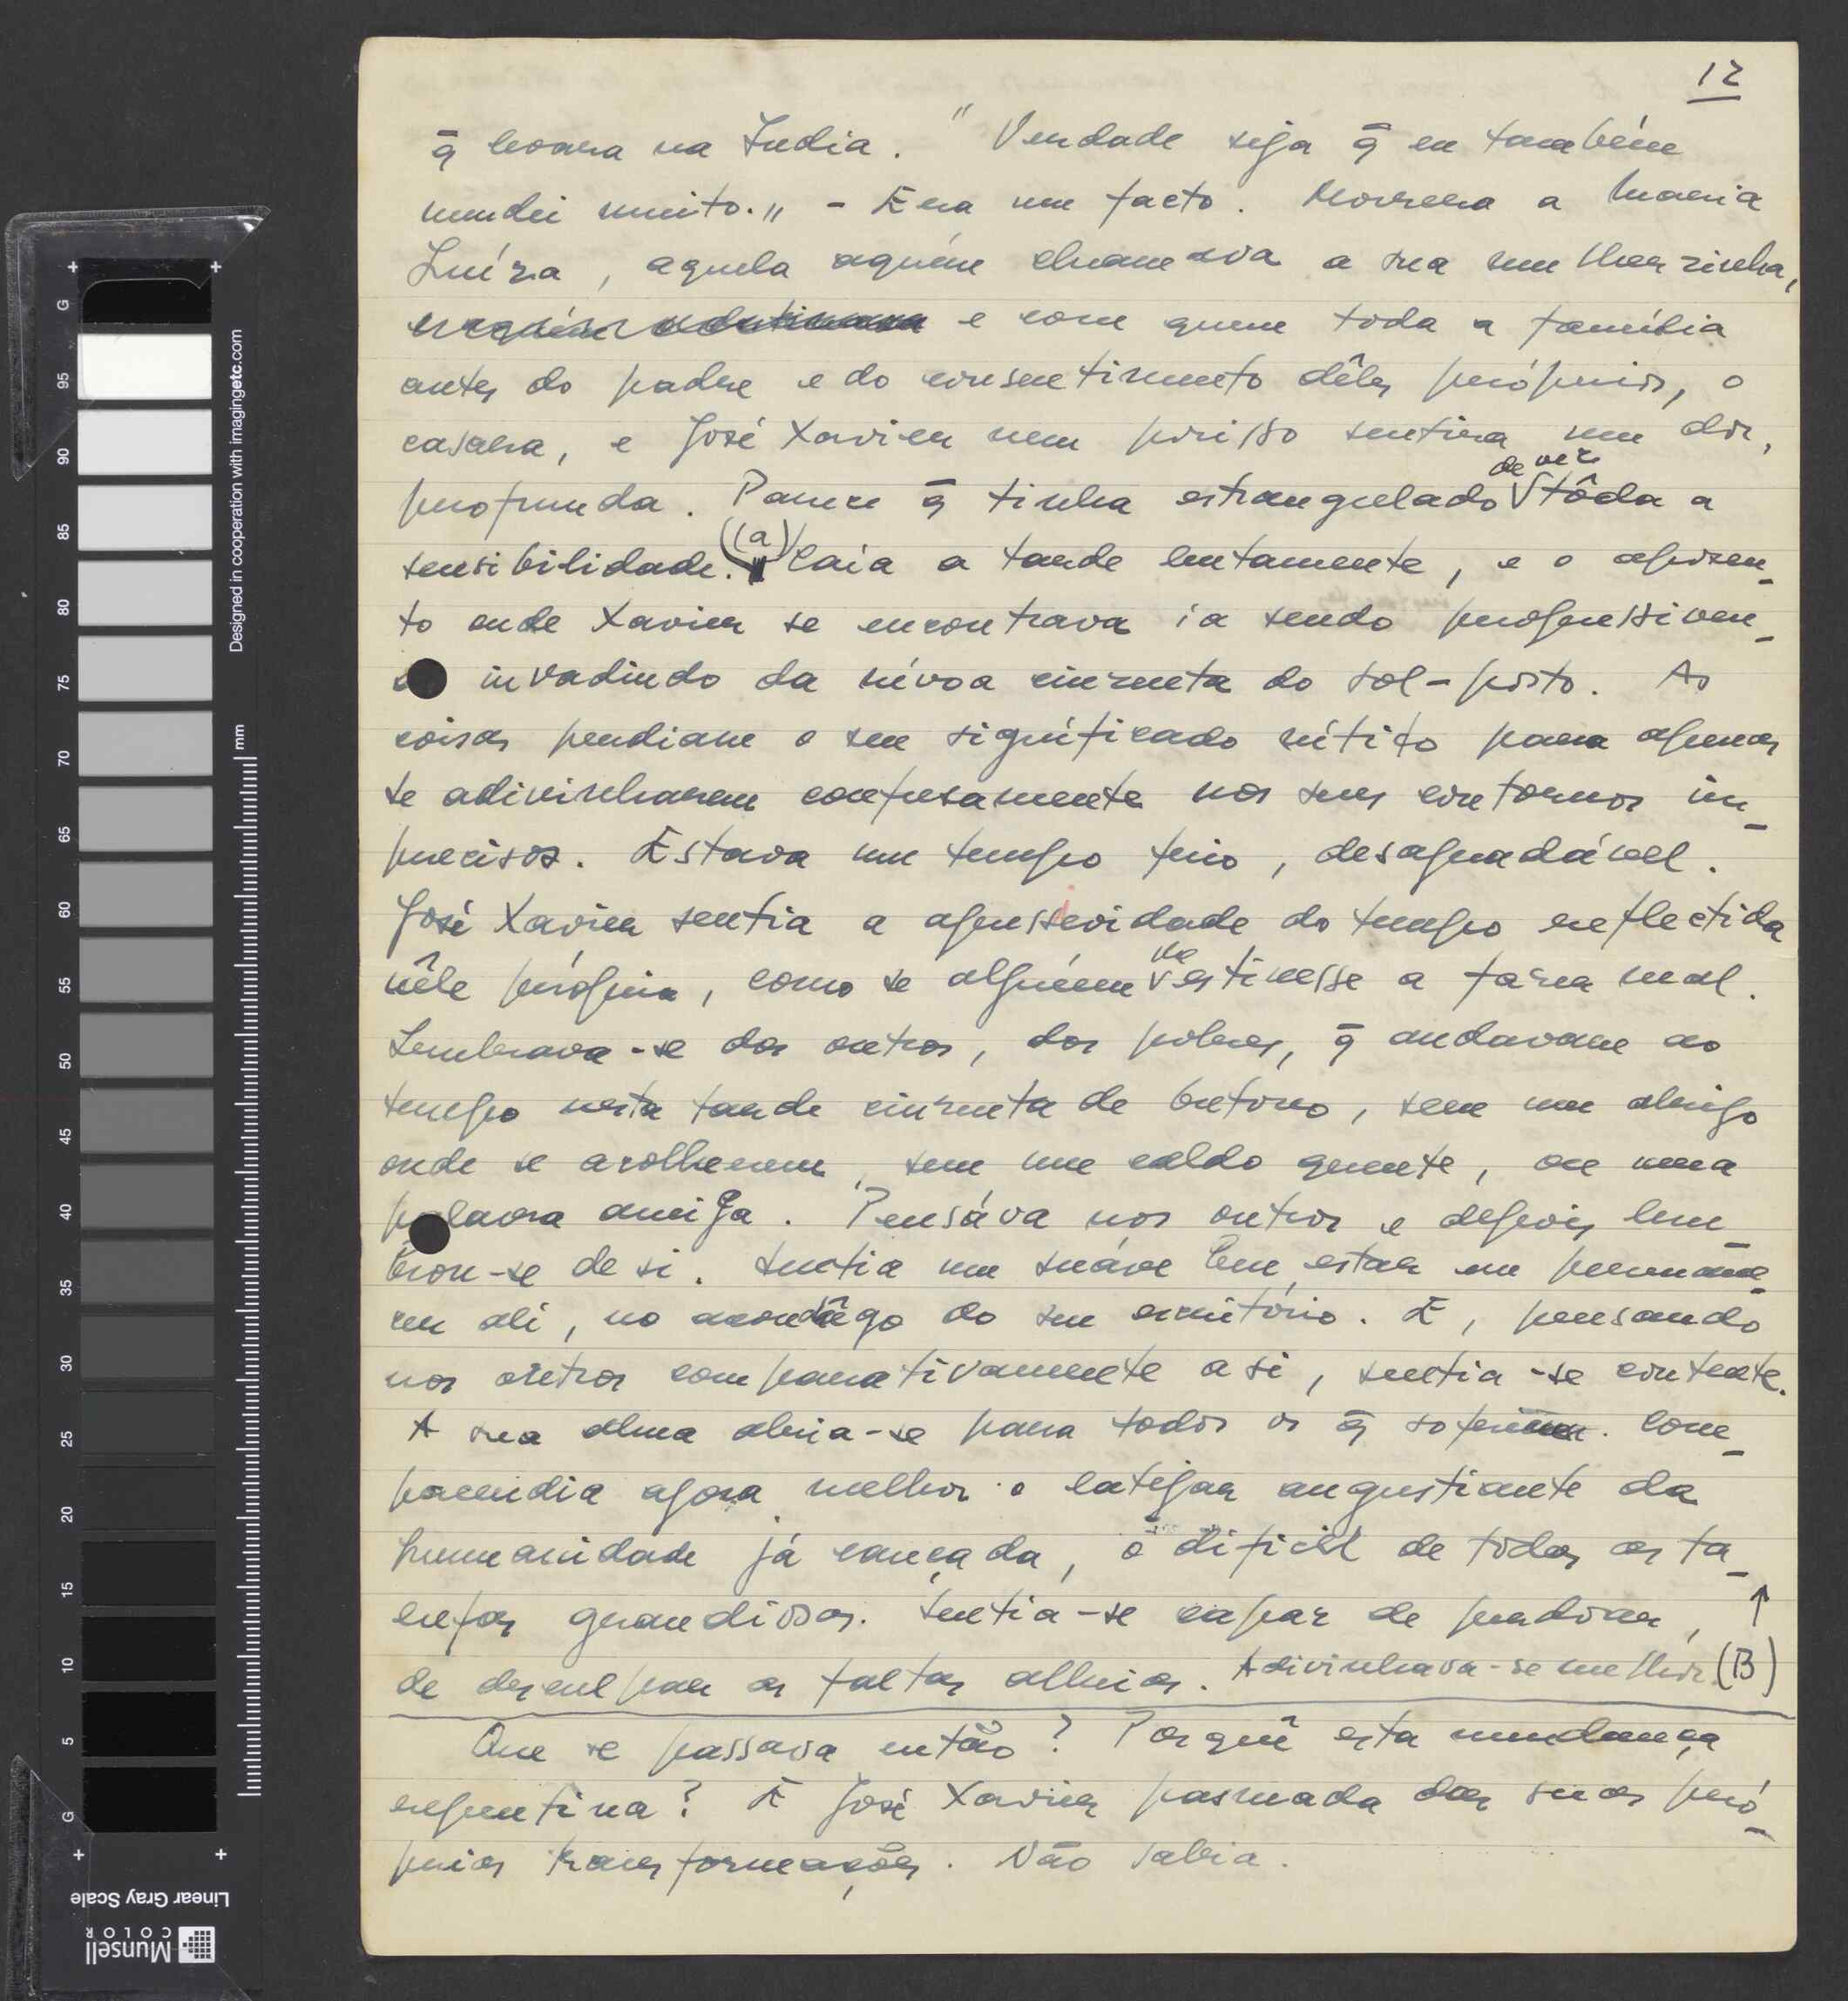 12
q̄ levara na India. "Verdade seja q̄ eu também
mudei muito." - Era um facto. Morrera a Maria
Luíza, aquela aquém chamava a sua mulherzinha,
e com quem toda a família
antes do padre e do consentimento dêles próprios, o
casara, e José Xavier nem porisso sentira um dor,
profunda. Parece q̄ tinha estrangulado de vez tôda a
sensibilidade. (a) Caía a tarde lentamente, e o aposen-
to onde Xavier se encontrava ia sendo progressiven-
invadindo da névoa cinzenta do sol-posto. As
coisas perdiam o seu significado nítido para apenas
se adivinharem confusamente nos seus contornos im-
precisos. Estava um tempo frio, desagradável.
José Xavier sentia a agressividade do tempo reflectida
nêle próprio, como se alguém lhe estivesse a fazer mal.
Lembrava-se dos outros, dos pobres, q̄ andavam ao
tempo nesta tarde cinzenta de Outono, sem um abrigo
onde se acolherem, sem um caldo quente, ou uma
palavra amiga. Pensáva nos outros e depois lem-
brou-se de si. Sentia um suáve bem estar em permane-
cer ali, no aconchêgo do seu escritório. E, pensando
nos outros comparativamente a si, sentia-se contente.
A sua alma abria-se para todos os q̄ sofriam. Com-
preendia agora melhor o latejar angustiante da
humanidade já cançada, o difícil de todas as ta-
refas grandiosas. Sentia-se capaz de perdoar, ↑
de desculpar as faltas alheias. Adivinhava-se melhor. (B)
Que se passava então? Porquê esta mudança
repentina? E José Xavier pasmada das suas pró-
prias transformações. Não sabia.
Designed in cooperation with imagingetc.com
mm
G 95 90 85 80 75 70 65 60 55 50 45 40 35 30 25 20 15 10 5 G
Linear Gray Scale
Munsell
COLOR